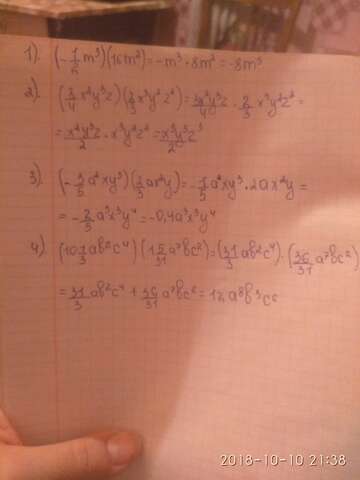 1). (-1/2 m³)(16m²) = -m³ · 8m² = -8m⁵
2). (3/4 x²y³z)(2/3 x³y²z²) = 3x²y³z/4 · 2/3 x³y²z² =
= x²y³z/2 · x³y²z² = x⁵y⁵z³/2
3). (-3/5 a²xy³)(2/3 ax²y) = -1/5 a²xy³ · 2ax²y =
= -2/5 a³x³y⁴ = -0,4a³x³y⁴
4). (10 1/3 ab²c⁴)(1 5/31 a⁷bc²) = (31/3 ab²c⁴) · (36/31 a⁷bc²)
= 31/3 ab²c⁴ + 36/31 a⁷bc² = 12a⁸b³c⁶
2018-10-10 21:38